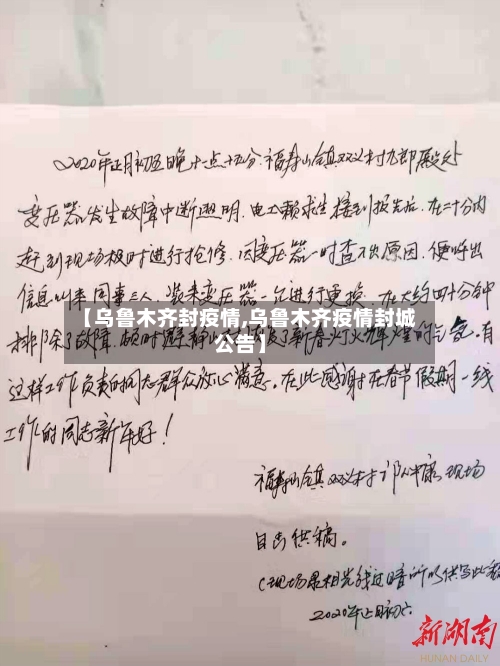 2020年正月初五晚十一点十五分,福寿山镇双义村九郎殿处
变压器发生故障中断照明.电工赖求生接到报告后.在二十分内
赶到现场极时进行抢修.因变压器一时查不出原因.便呼出
信息叫来同事三人.装来变压器一台进行更换.在大约四十分钟
【乌鲁木齐封疫情,乌鲁木齐疫情封城
公告】
排除了故障.
新春灯火辉煌的
有
这样工作负责的同志群众放心满意。在此感谢在春节假期一线
工作的同志新年好!
福寿山镇双义村
现场
目击供稿。
(现场照相光线过暗所以供写此稿
2020年正月初六
新湖南
HUNAN DAILY